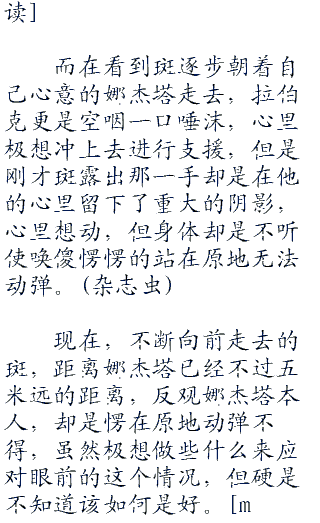 读]
而在看到斑逐步朝着自
己心意的娜杰塔走去，拉伯
克更是空咽一口唾沫，心里
极想冲上去进行支援，但是
刚才斑露出那一手却是在他
的心里留下了重大的阴影，
心里想动，但身体却是不听
使唤傻愣愣的站在原地无法
动弹。(杂志虫)
现在，不断向前走去的
斑，距离娜杰塔已经不过五
米远的距离，反观娜杰塔本
人，却是愣在原地动弹不
得，虽然极想做些什么来应
对眼前的这个情况，但硬是
不知道该如何是好。[m